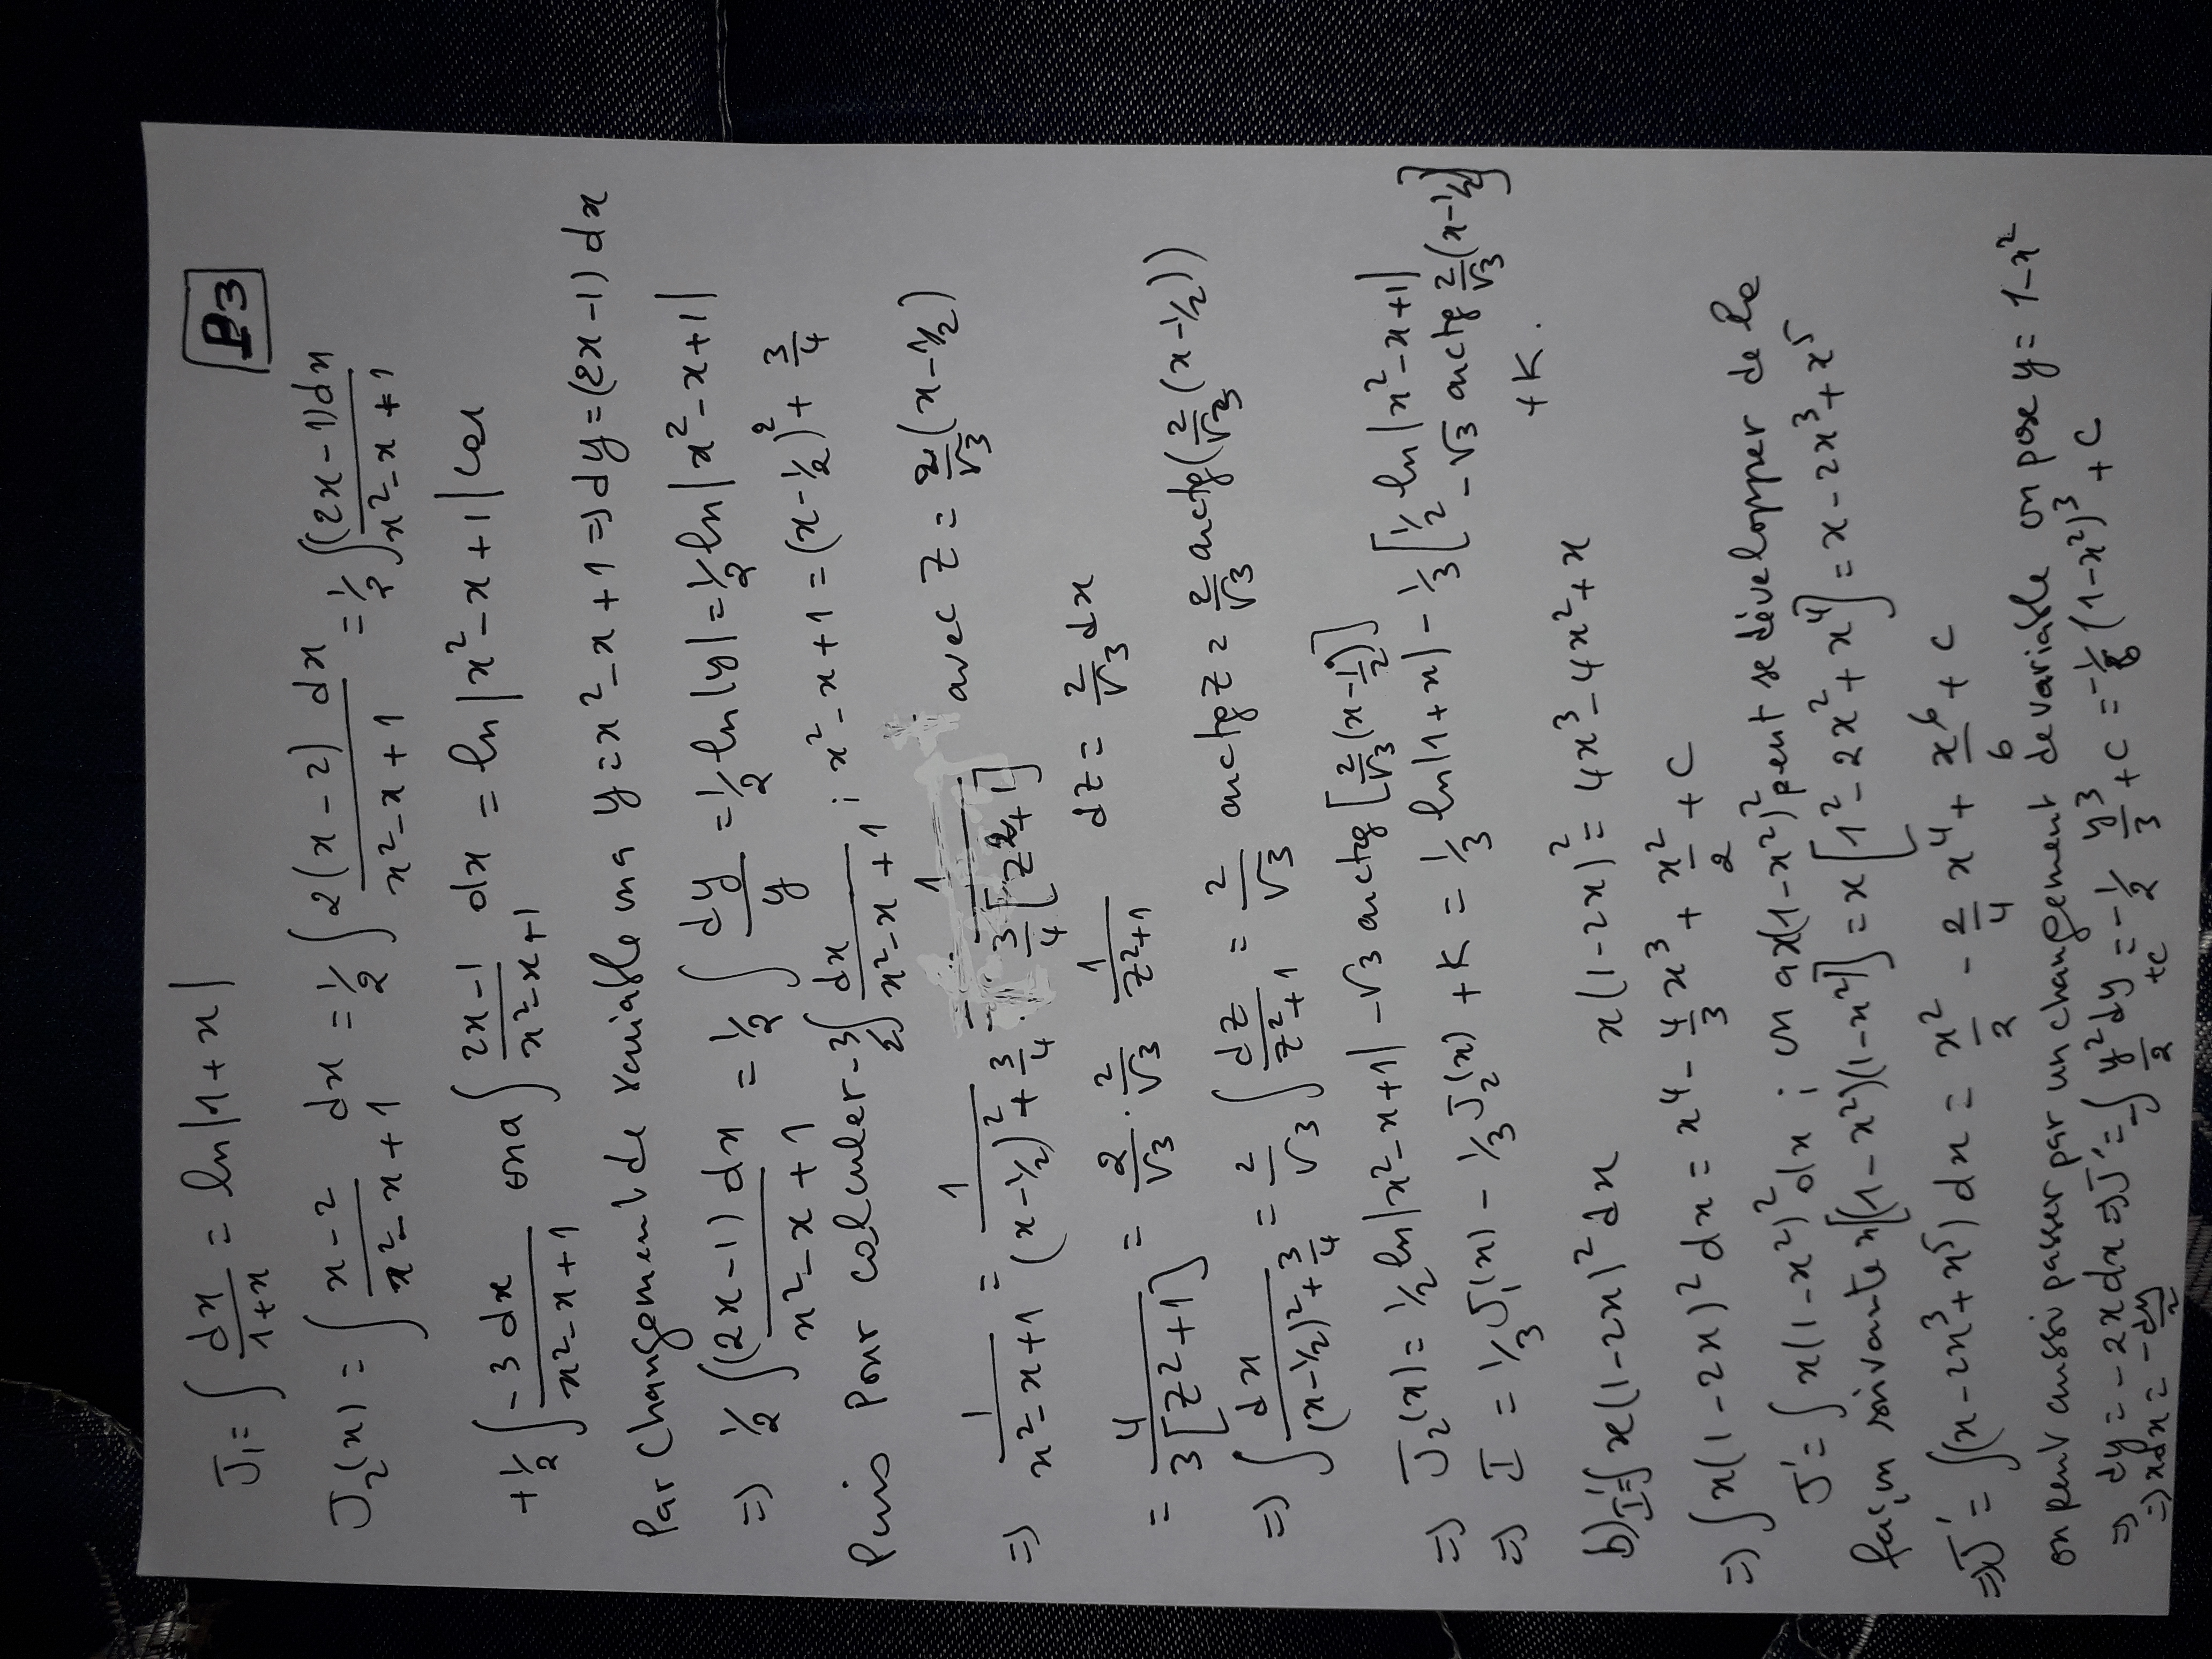 P3
J₁ = ∫ dx/(1+x) = ln|1+x|
J₂(x) = ∫ (x-2)/(x²-x+1) dx = ½ ∫ 2(x-2)dx/(x²-x+1) = ½ ∫ (2x-1)dx/(x²-x+1)
+½ ∫ -3dx/(x²-x+1) on a ∫ (2x-1)/(x²-x+1) dx = ln|x²-x+1| car
Par Changement de variable on a y = x²-x+1 => dy = (2x-1)dx
=> ½ ∫ (2x-1)dx/(x²-x+1) = ½ ∫ dy/y = ½ ln|y| = ½ ln|x²-x+1|
Puis Pour calculer -3/2 ∫ dx/(x²-x+1) ; x²-x+1 = (x-½)² + 3/4
=> 1/(x²-x+1) = 1/((x-½)²+3/4) = 1/(3/4[z²+1]) avec z = 2/√3 (x-½)
= 4/(3[z²+1]) = 2/√3 · 2/√3 1/(z²+1) dz = 2/√3 dx
=> ∫ dx/((x-½)²+3/4) = 2/√3 ∫ dz/(z²+1) = 2/√3 arctg z = 2/√3 arctg(2/√3 (x-½))
=> J₂(x) = ½ ln|x²-x+1| -√3 arctg[2/√3 (x-½)]
=> I = ⅓ J₁(x) - ⅓ J₂(x) + K = ⅓ ln|1+x| - ⅓[½ ln|x²-x+1| -√3 arctg 2/√3 (x-½)]
+K.
b) I'=∫ x(1-2x)² dx x(1-2x)² = 4x³-4x²+x
=> ∫ x(1-2x)² dx = x⁴ - 4/3 x³ + x²/2 + C
J' = ∫ x(1-x²)² dx ; on a x(1-x²)² peut se développer de la
façon suivante x[(1-x²)(1-x²)] = x[1²-2x²+x⁴] = x-2x³+x⁵
=> J' = ∫ (x-2x³+x⁵) dx = x²/2 - 2/4 x⁴ + x⁶/6 + C
on peut aussi passer par un changement de variable on pose y = 1-x²
=> dy = -2x dx => J' = -∫ y²/2 dy = -½ y³/3 + C = -1/6 (1-x²)³ + C
=> xdx = -dy/2 +C